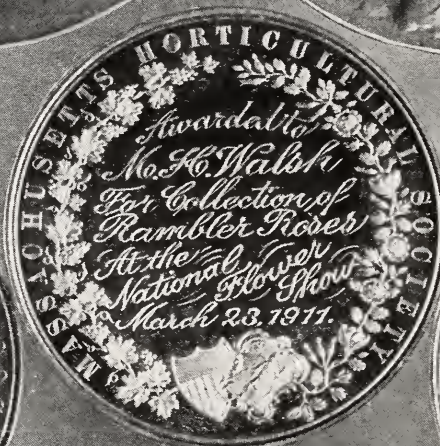 MASSACHUSETTS HORTICULTURAL SOCIETY
Awarded to
M. H. Walsh
For Collection of
Rambler Roses
At the
National Flower Show
March 23, 1911.